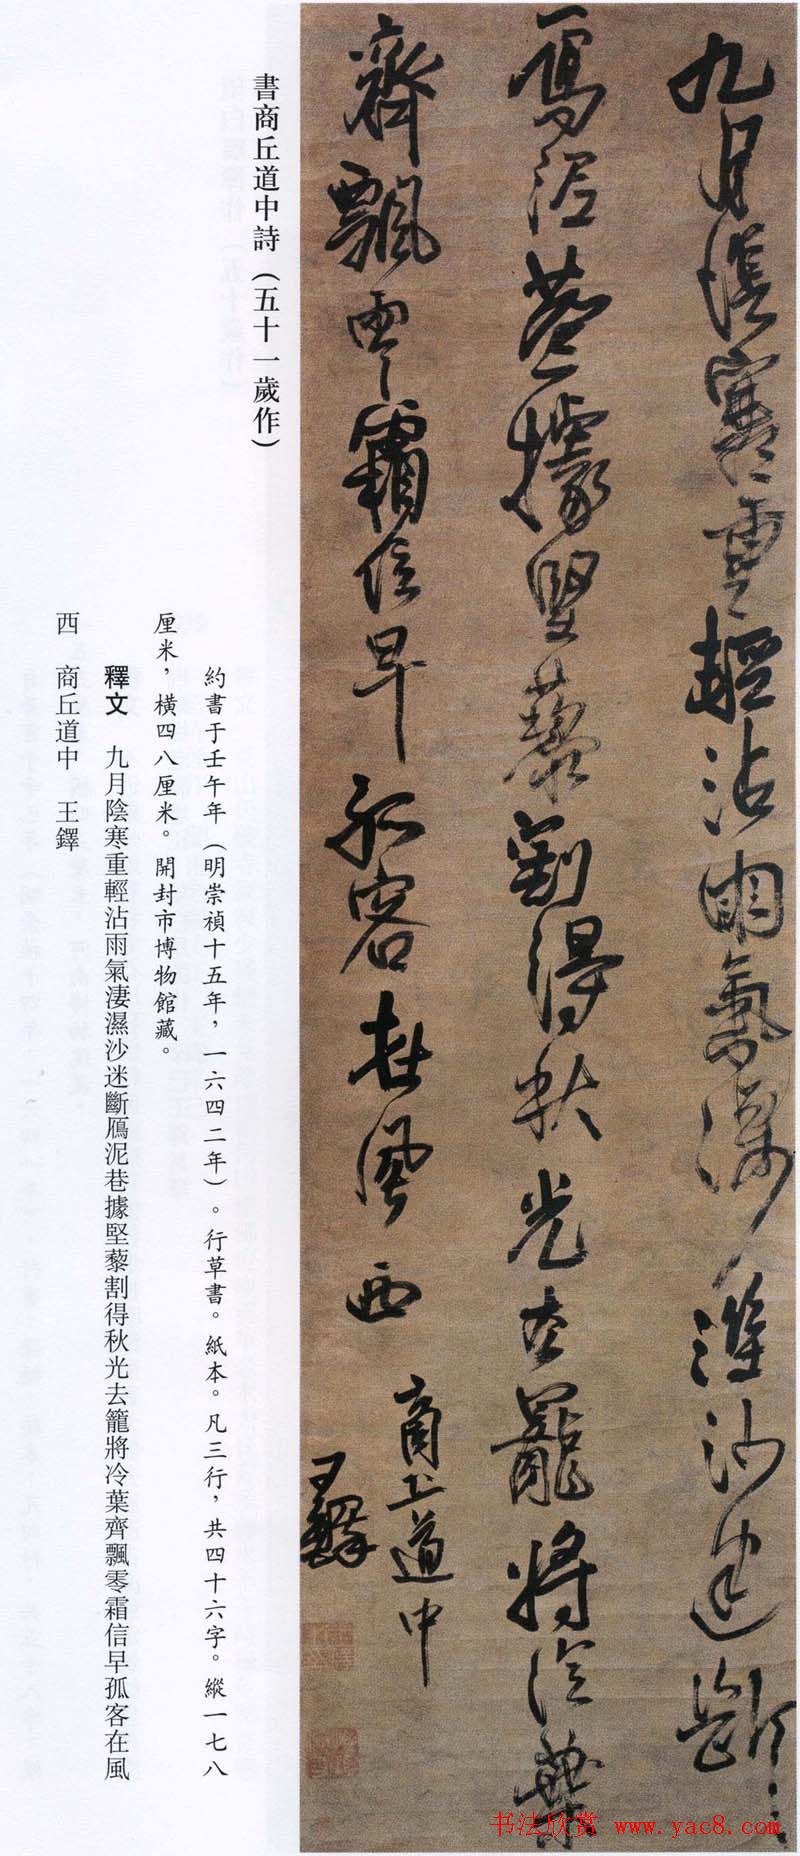 九月陰寒重輕沾雨氣淒濕沙迷斷
鴈泥巷據堅藜割得秋光去籠將冷葉
齊飄零霜信早孤客在風西
商丘道中
王鐸
書商丘道中詩（五十一歲作）
約書于壬午年（明崇禎十五年，一六四二年）。行草書。紙本。凡三行，共四十六字。縱一七八
厘米，橫四八厘米。開封市博物館藏。
釋文　九月陰寒重輕沾雨氣淒濕沙迷斷鴈泥巷據堅藜割得秋光去籠將冷葉齊飄零霜信早孤客在風
西　商丘道中　王鐸
书法欣赏 www.yac8.com